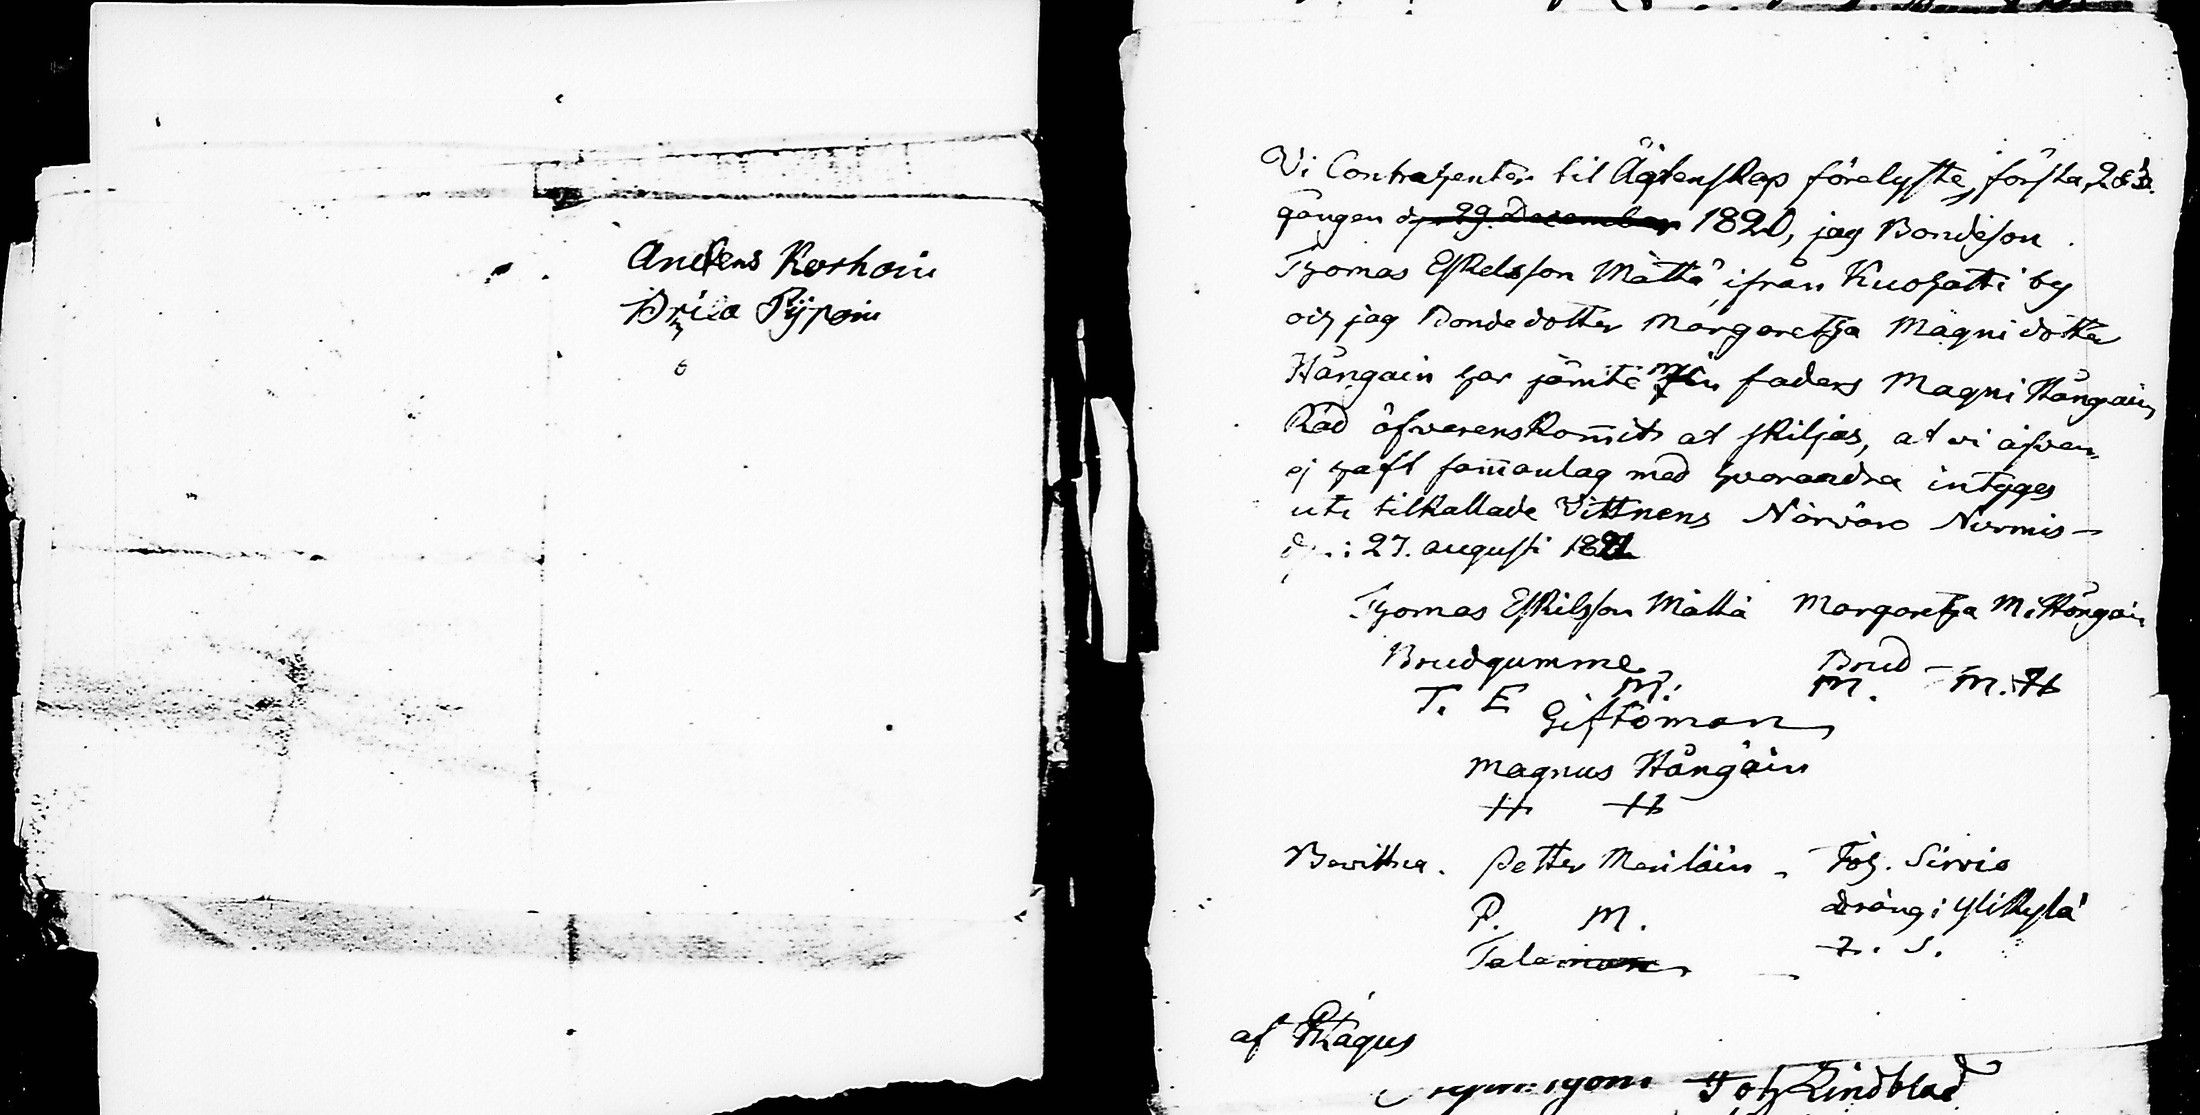 Anders Korhoin
Brita Pijpoin
Vi Contrahenter til Ägtenskap förelyste, första, 2 & 3.
gången d. 29. December 1820, jag Bondeson
Thomas Eskelsson Mättä, ifrån Kuohatti by
och jag Bondedotter Margaretha Magni dotter
Hångain har jämte min faders Magni Hångain,
Råd öfverenskom̅it at skiljas, at vi äfven
ej haft sam̅anlag med hvarandra intyges
uti tilkallade Vittnens Närvaro Nurmis –
d. : 27. augusti 1821
Thomas Eskilsson Mättä Margaretha M. Hångain
Brudgumme Brud –
T. E M. M. M. H
Giftoman
Magnus Hångain
H H
Bevittna. Petter Meriläin – Joh. Sirvio
P. M. dräng i Ylikylä
J. S.
Talaman
af
Joh Lindblad